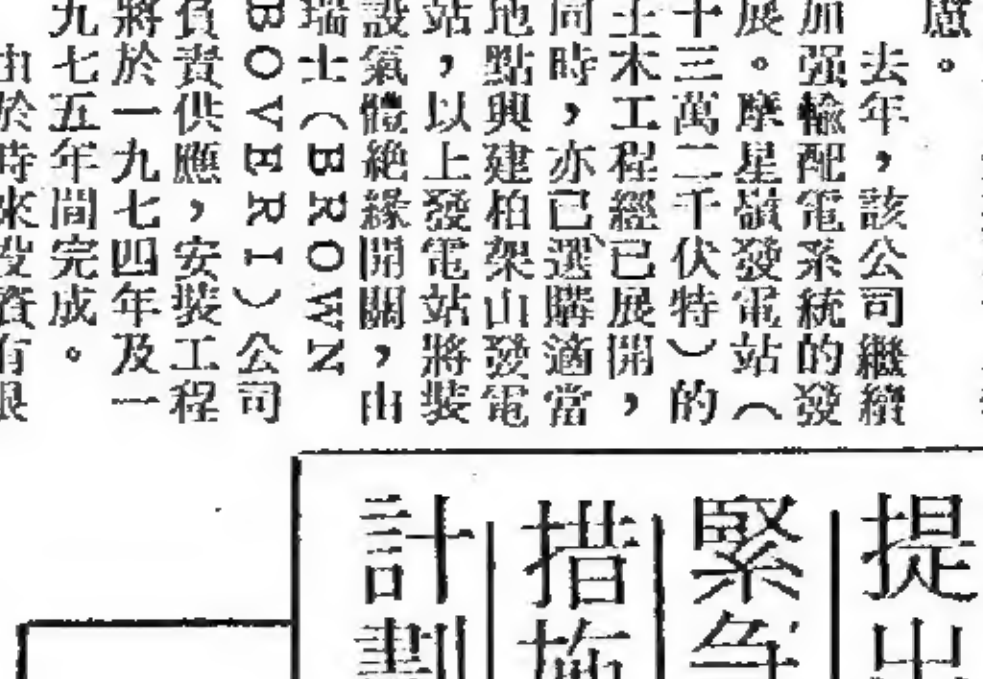 慮。
去年，該公司繼續
加强輸配電系統的發
展。摩星嶺發電站（
十三萬二千伏特）的
土木工程經已展開，
同時，亦已選購適當
地點興建柏架山發電
站，以上發電站將裝
設氣體絶緣開關，由
瑞士（BROWN
BOVERI）公司
負責供應，安裝工程
將於一九七四年及一
九七五年間完成。
由於時來投資有限
提出
緊急
措施
計劃